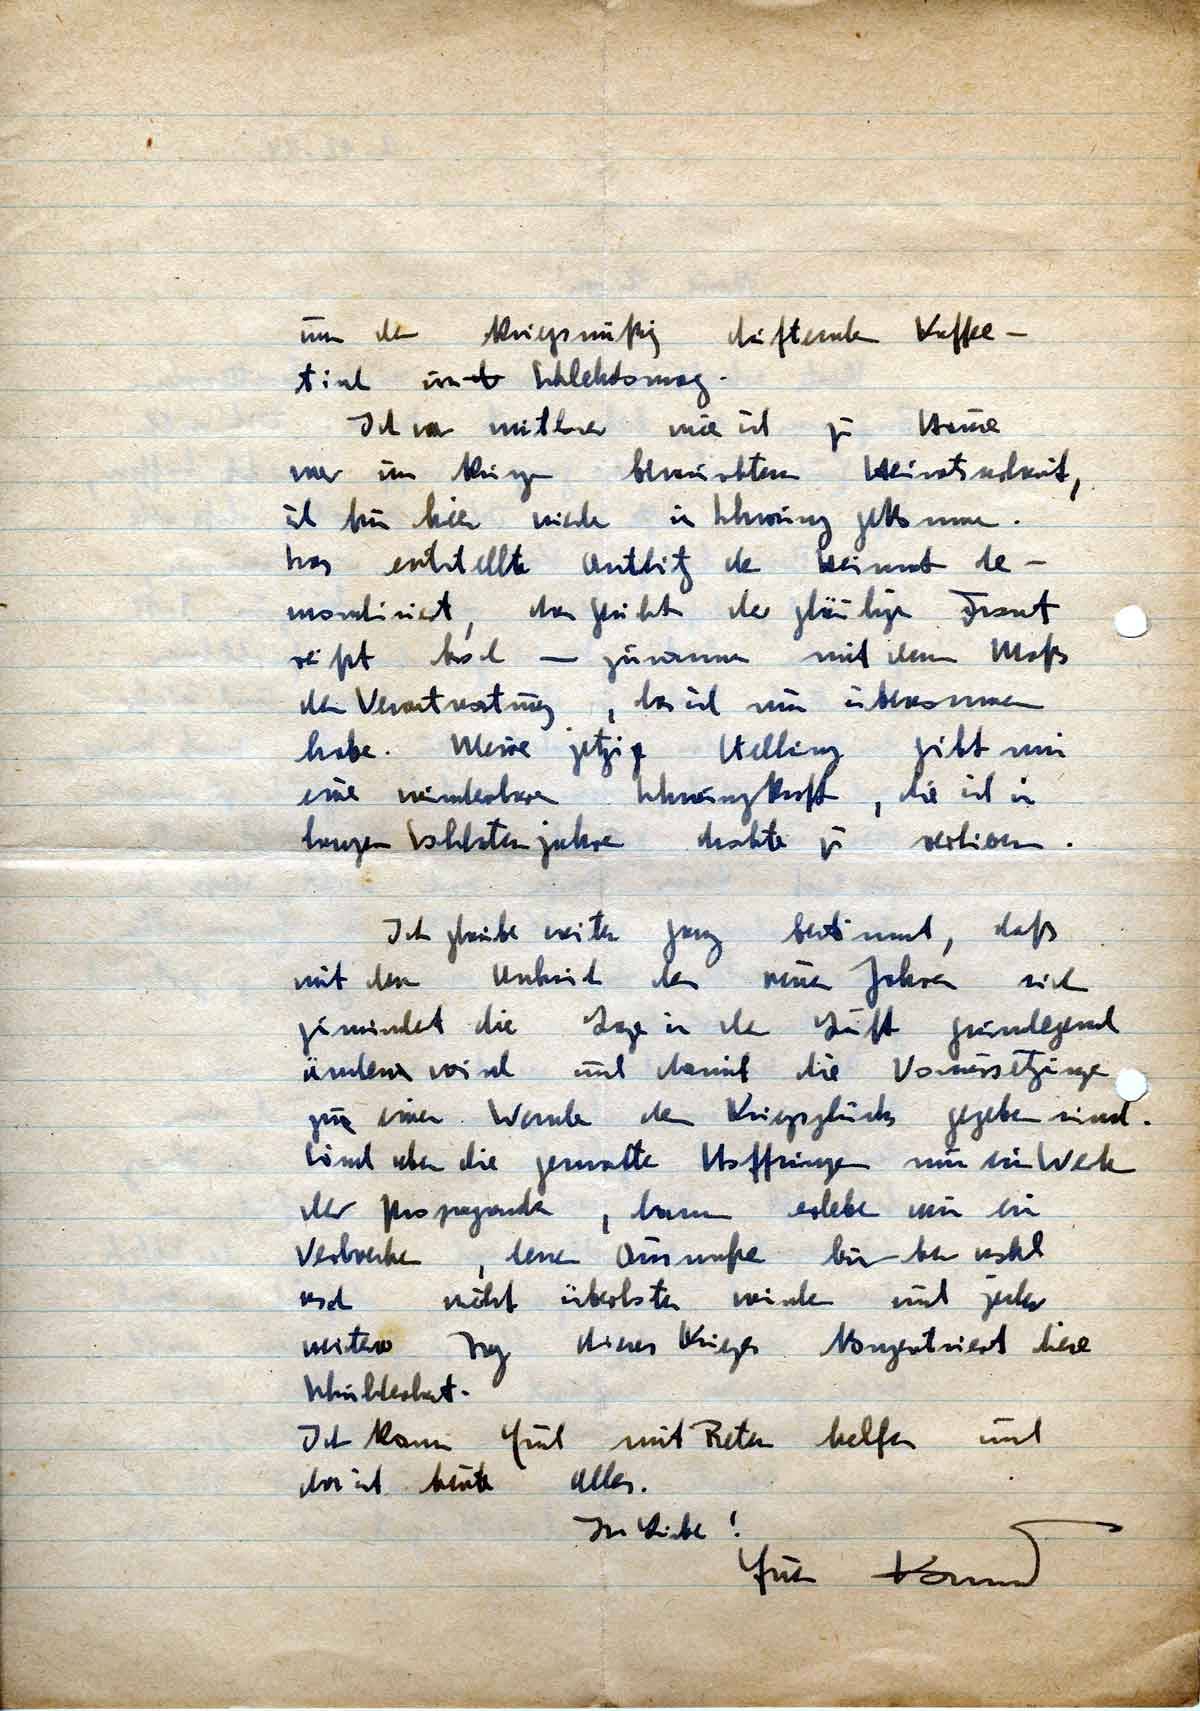 um den kriegsmäßig duftenden Kaffee-
tisch und Schlehdornweg.
Ich war mittlerer wie ich zu Hause
war im kriegen Heimaturlaub,
ich bin hier wieder in Schwung gekommen.
Das entstellte Antlitz der Heimat de-
moralisiert, das Gesicht der gläubigen Front
reißt hoch — zusammen mit dem Maß
der Verantwortung, das ich nun übernommen
habe. Meine jetzige Stellung gibt mir
eine wunderbare Schwungkraft, die ich in
langen Soldatenjahren drohte zu verlieren.
Ich glaube weiter ganz bestimmt, daß
mit dem Anbruch des neuen Jahres sich
zumindest die Lage in der Luft grundlegend
ändern wird und damit die Voraussetzungen
zur einer Wende des Kriegsglücks gegeben sind.
Sind aber die gemachten Hoffnungen nur ein Werk
der Propaganda, dann erleben wir ein
Verbrechen, dessen Ausmaße wir hier wohl
noch nicht überblicken würden und jeder
weitere Tag dieses Krieges konzentriert diese
Schuldenlast.
Ich kann Euch mit Beten helfen und
das ist heute alles.
In Liebe!
Euer Konrad